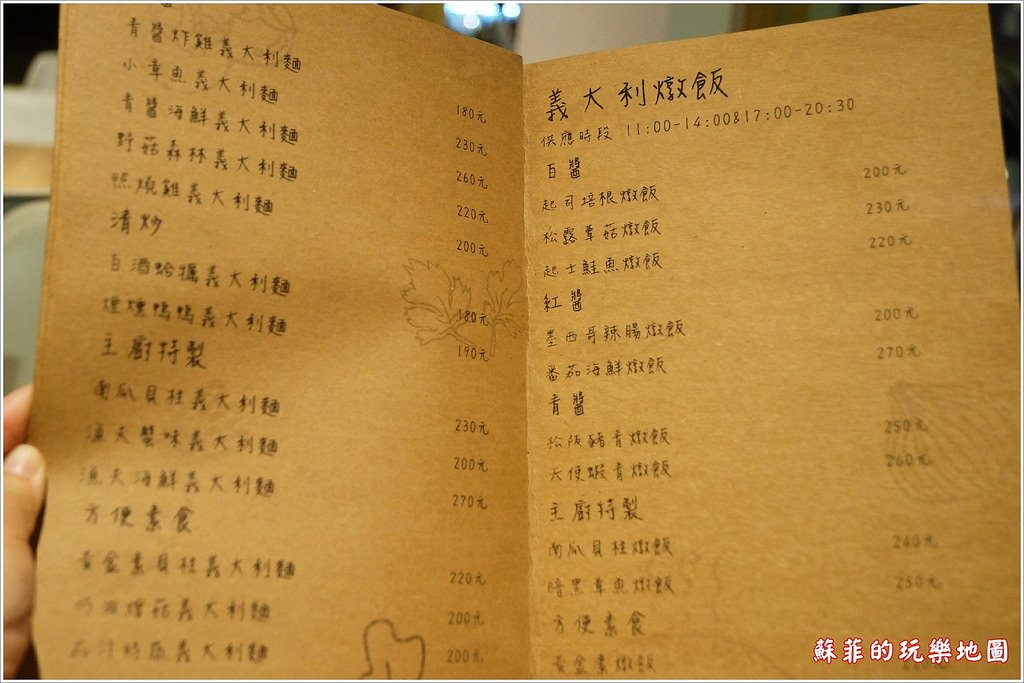 青醬炸雞義大利麵 180元
小章魚義大利麵 230元
青醬海鮮義大利麵 260元
野菇森林義大利麵 220元
照燒雞義大利麵 200元
清炒
白酒蛤蠣義大利麵 180元
煙燻鴨鴨義大利麵 190元
主廚特製
南瓜貝柱義大利麵 230元
漁夫蟹味義大利麵 200元
漁夫海鮮義大利麵 270元
方便素食
黃金素貝柱義大利麵 220元
奶油燴菇義大利麵 200元
茄汁時蔬義大利麵 200元
義大利燉飯
供應時段 11:00-14:00&17:00-20:30
白醬
起司培根燉飯 200元
松露蕈菇燉飯 230元
起士鮭魚燉飯 220元
紅醬
墨西哥辣腸燉飯 200元
番茄海鮮燉飯 270元
青醬
松阪豬青燉飯 250元
天使蝦青燉飯 260元
主廚特製
南瓜貝柱燉飯 240元
暗黑章魚燉飯 250元
方便素食
黃金素燉飯
蘇菲的玩樂地圖